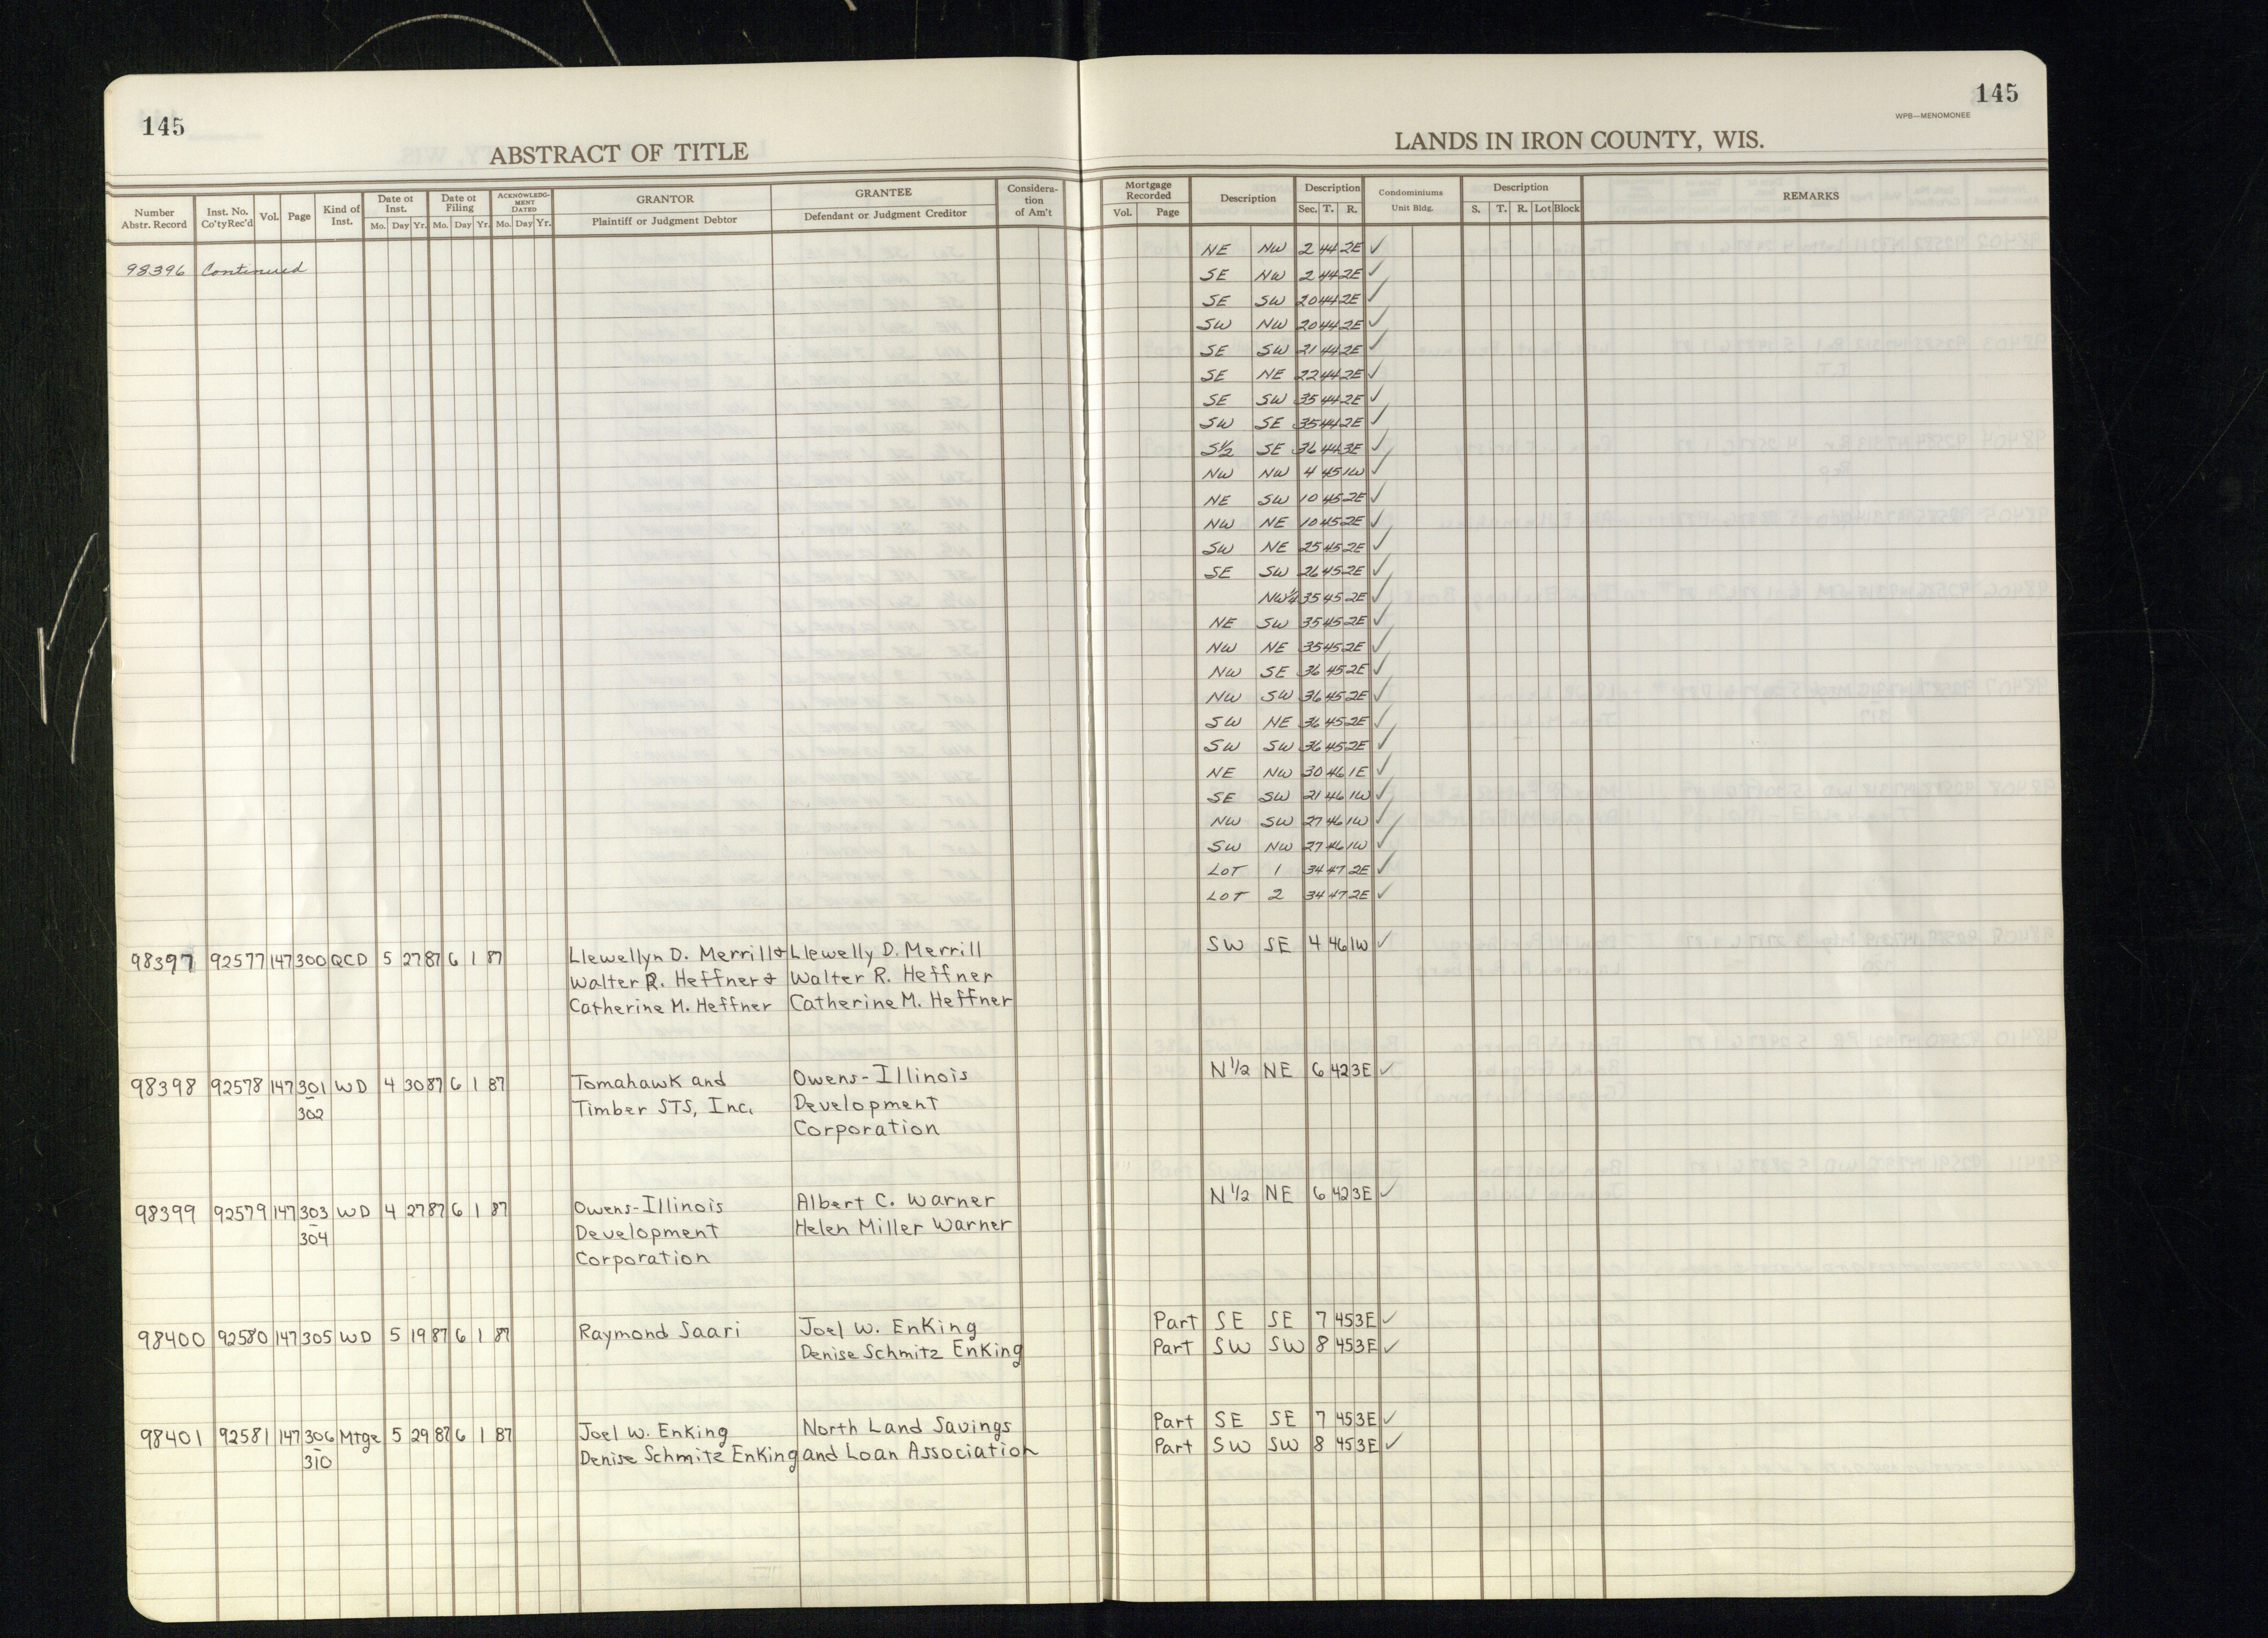 145
145
WPB—MENOMONEE
ABSTRACT OF TITLE
LANDS IN IRON COUNTY, WIS.
Number Abstr. Record
Inst. No. Co'tyRec'd
Vol.
Page
Kind of Inst.
Date of Inst.
Mo. Day Yr.
Date of Filing
Mo. Day Yr.
ACKNOWLEDG-MENT DATED
Mo. Day Yr.
GRANTOR
Plaintiff or Judgment Debtor
GRANTEE
Defendant or Judgment Creditor
Considera-tion of Am't
Mortgage Recorded
Vol. Page
Description
Description
Sec. T. R.
Condominiums
Unit Bldg.
Description
S. T. R. Lot Block
REMARKS
98396 Continued
NE NW 2 44 2E ✓
SE NW 2 44 2E ✓
SE SW 20 44 2E ✓
SW NW 20 44 2E ✓
SE SW 21 44 2E ✓
SE NE 22 44 2E ✓
SE SW 35 44 2E ✓
SW SE 35 44 2E ✓
S½ SE 36 44 3E ✓
NW NW 4 45 1W ✓
NE SW 10 45 2E ✓
NW NE 10 45 2E ✓
SW NE 25 45 2E ✓
SE SW 26 45 2E ✓
NW¼ 35 45 2E ✓
NE SW 35 45 2E ✓
NW NE 35 45 2E ✓
NW SE 36 45 2E ✓
NW SW 36 45 2E ✓
SW NE 36 45 2E ✓
SW SW 36 45 2E ✓
NE NW 30 46 1E ✓
SE SW 21 46 1W ✓
NW SW 27 46 1W ✓
SW NW 27 46 1W ✓
LOT 1 34 47 2E ✓
LOT 2 34 47 2E ✓
98397 92577 147 300 QCD 5 27 87 6 1 87 Llewellyn D. Merrill & Llewelly D. Merrill SW SE 4 46 1W ✓
Walter R. Heffner & Walter R. Heffner
Catherine M. Heffner Catherine M. Heffner
98398 92578 147 301 WD 4 30 87 6 1 87 Tomahawk and Owens-Illinois N½ NE 6 42 3E ✓
302 Timber STS, Inc. Development
Corporation
98399 92579 147 303 WD 4 27 87 6 1 87 Owens-Illinois Albert C. Warner N½ NE 6 42 3E ✓
304 Development Helen Miller Warner
Corporation
98400 92580 147 305 WD 5 19 87 6 1 87 Raymond Saari Joel W. EnKing Part SE SE 7 45 3E ✓
Denise Schmitz EnKing Part SW SW 8 45 3E ✓
98401 92581 147 306 Mtge 5 29 87 6 1 87 Joel W. EnKing North Land Savings Part SE SE 7 45 3E ✓
310 Denise Schmitz EnKing and Loan Association Part SW SW 8 45 3E ✓